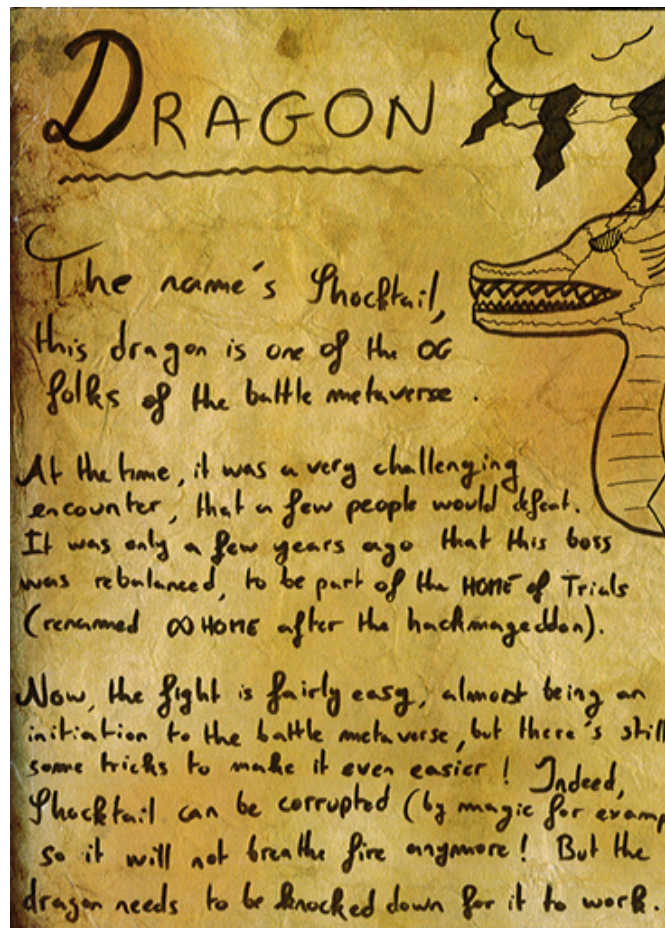 DRAGON
The name's Shocktail,
this dragon is one of the OG
folks of the battle metaverse.
At the time, it was a very challenging
encounter, that a few people would defeat.
It was only a few years ago that this boss
was rebalanced, to be part of the HOME of Trials
(renamed ∞ HOME after the hackmageddon).
Now, the fight is fairly easy, almost being an
initiation to the battle metaverse, but there's still
some tricks to make it even easier! Indeed,
Shocktail can be corrupted (by magic for examp
so it will not breathe fire anymore! But the
dragon needs to be knocked down for it to work.